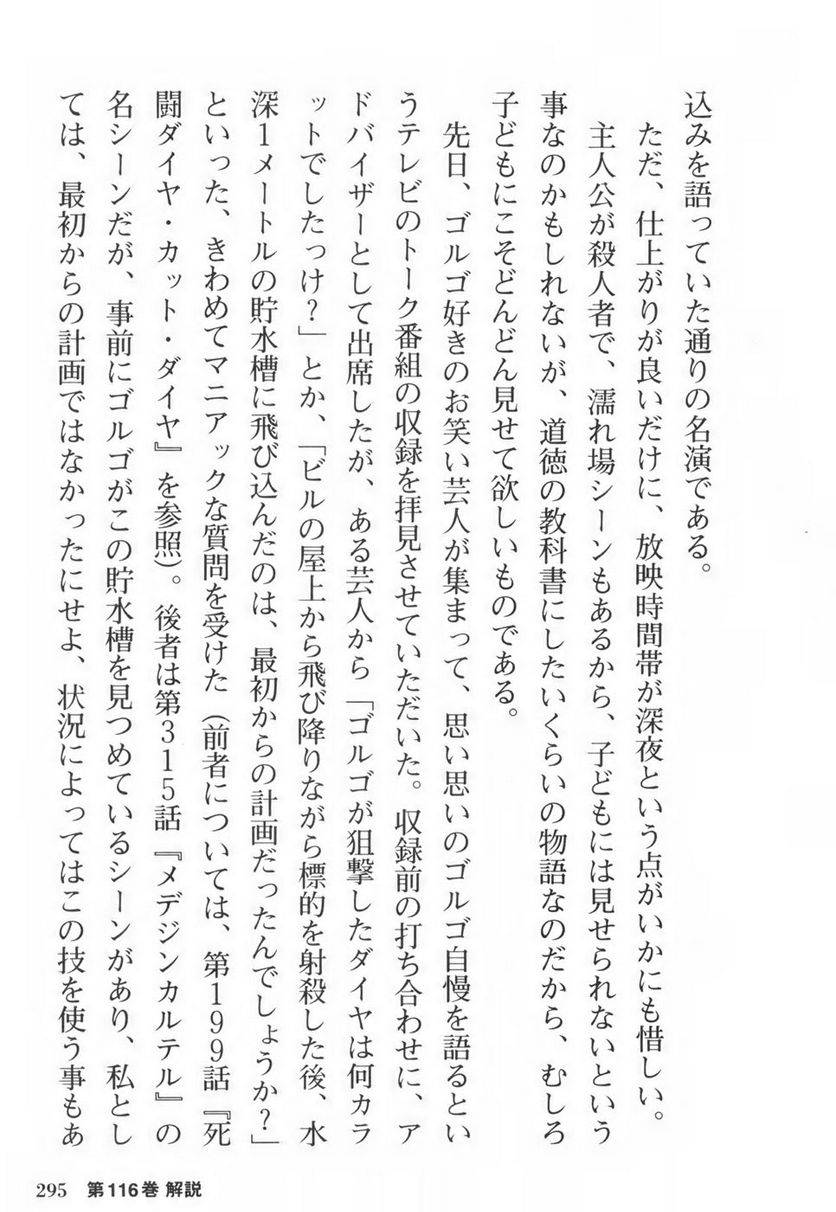 込みを語っていた通りの名演である。
ただ、仕上がりが良いだけに、放映時間帯が深夜という点がいかにも惜しい。
主人公が殺人者で、濡れ場シーンもあるから、子どもには見せられないという
事なのかもしれないが、道徳の教科書にしたいくらいの物語なのだから、むしろ
子どもにこそどんどん見せて欲しいものである。
先日、ゴルゴ好きのお笑い芸人が集まって、思い思いのゴルゴ自慢を語るとい
うテレビのトーク番組の収録を拝見させていただいた。収録前の打ち合わせに、ア
ドバイザーとして出席したが、ある芸人から「ゴルゴが狙撃したダイヤは何カラ
ットでしたっけ？」とか、「ビルの屋上から飛び降りながら標的を射殺した後、水
深1メートルの貯水槽に飛び込んだのは、最初からの計画だったんでしょうか？」
といった、きわめてマニアックな質問を受けた（前者については、第199話『死
闘ダイヤ・カット・ダイヤ』を参照）。後者は第315話『メデジンカルテル』の
名シーンだが、事前にゴルゴがこの貯水槽を見つめているシーンがあり、私とし
ては、最初からの計画ではなかったにせよ、状況によってはこの技を使う事もあ
295 第116巻 解説